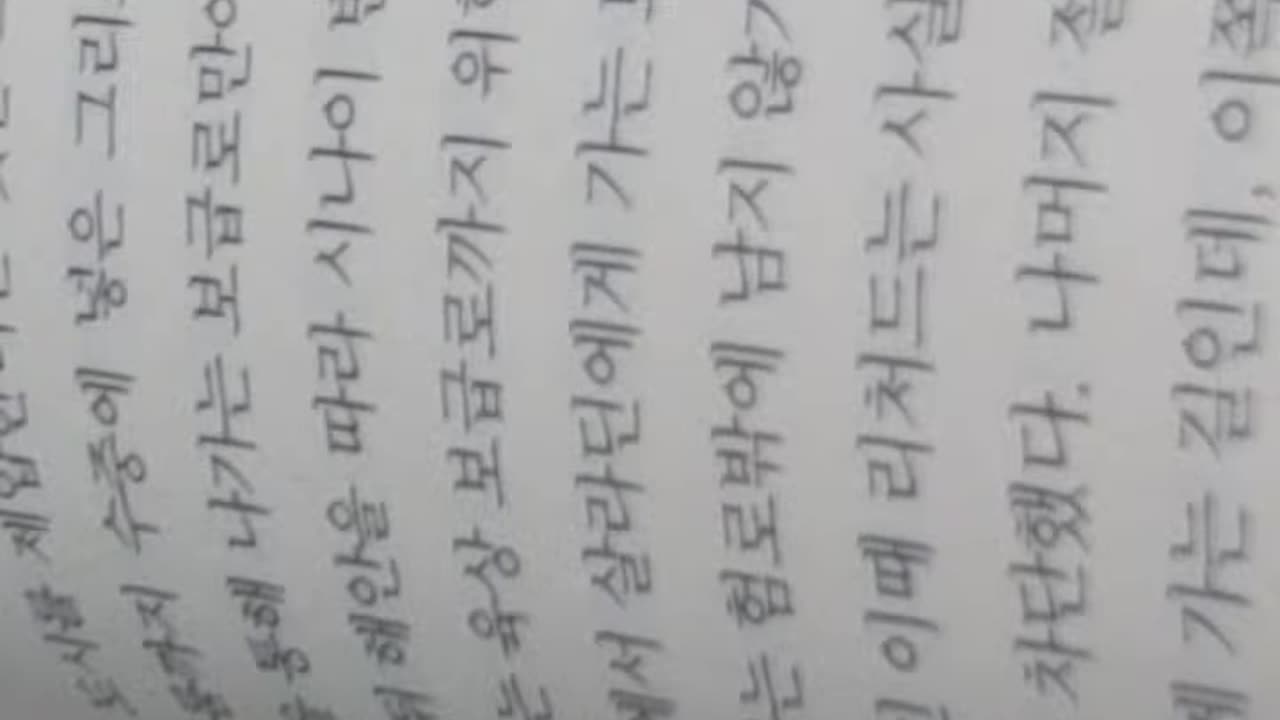 도시를 제압한
까지 수중에 넣은 그리
통해 나가는 보급로만이
해안을 따라 시나이
는 육상 보급로까지 위
에서 살라딘에게 가는
는 험로밖에 남지 않
이때 리처드는 사실
차단했다. 나머지
에 가는 길인데, 이쪽